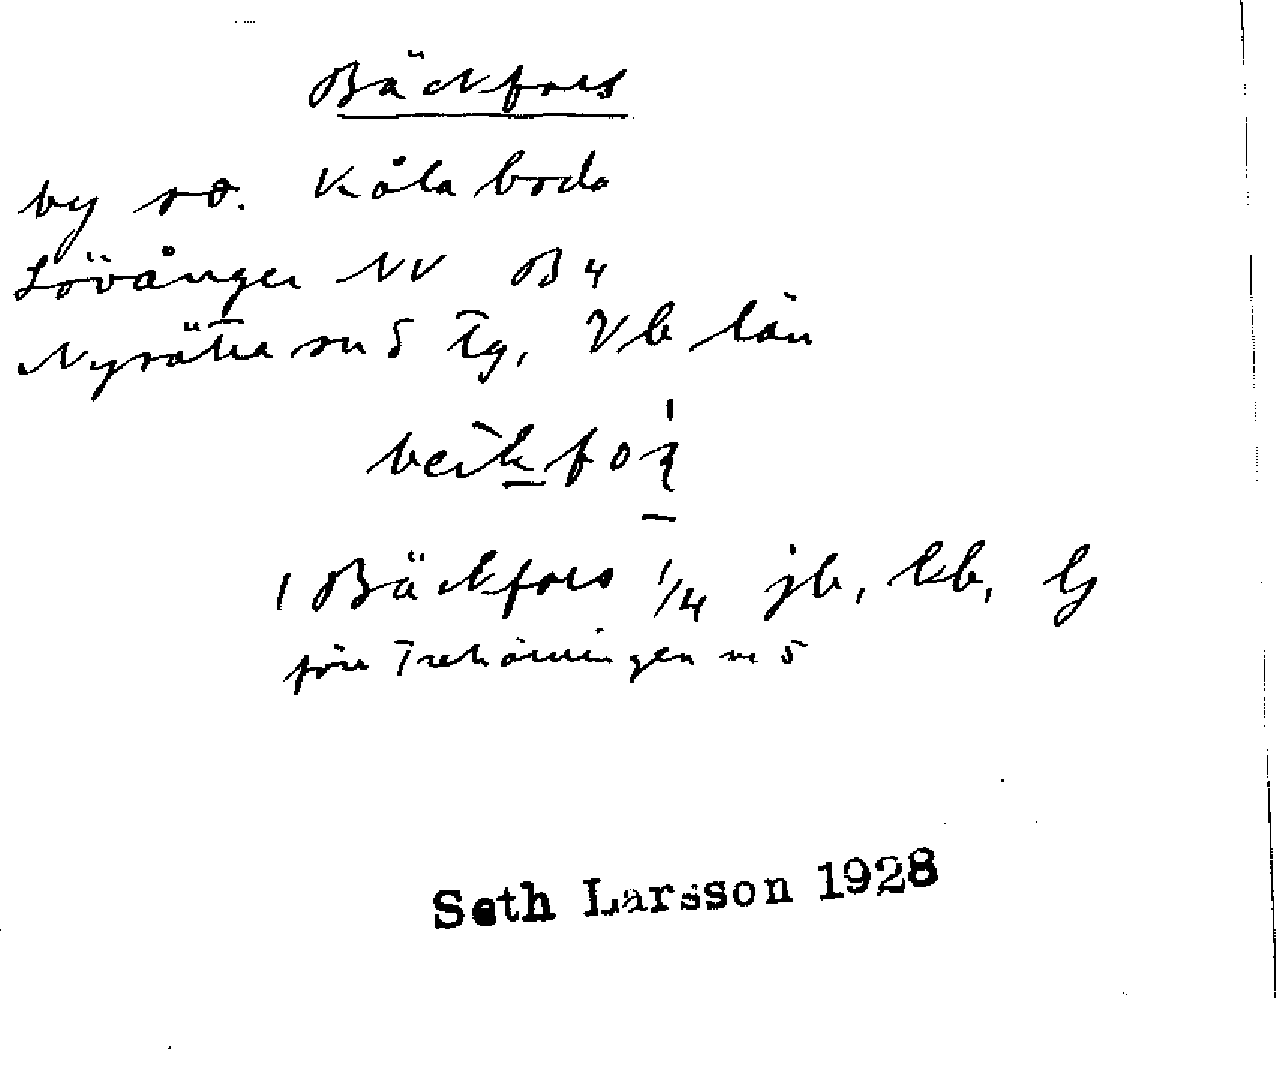 Bäckfors
by so. Kålaboda
Lövånger NV B4
Nysätra sn 5 Tg, Vb län
1 Bäckfors 1/4 jb, kb, lj
före Trehörningen nr 5
Seth Larsson 1928